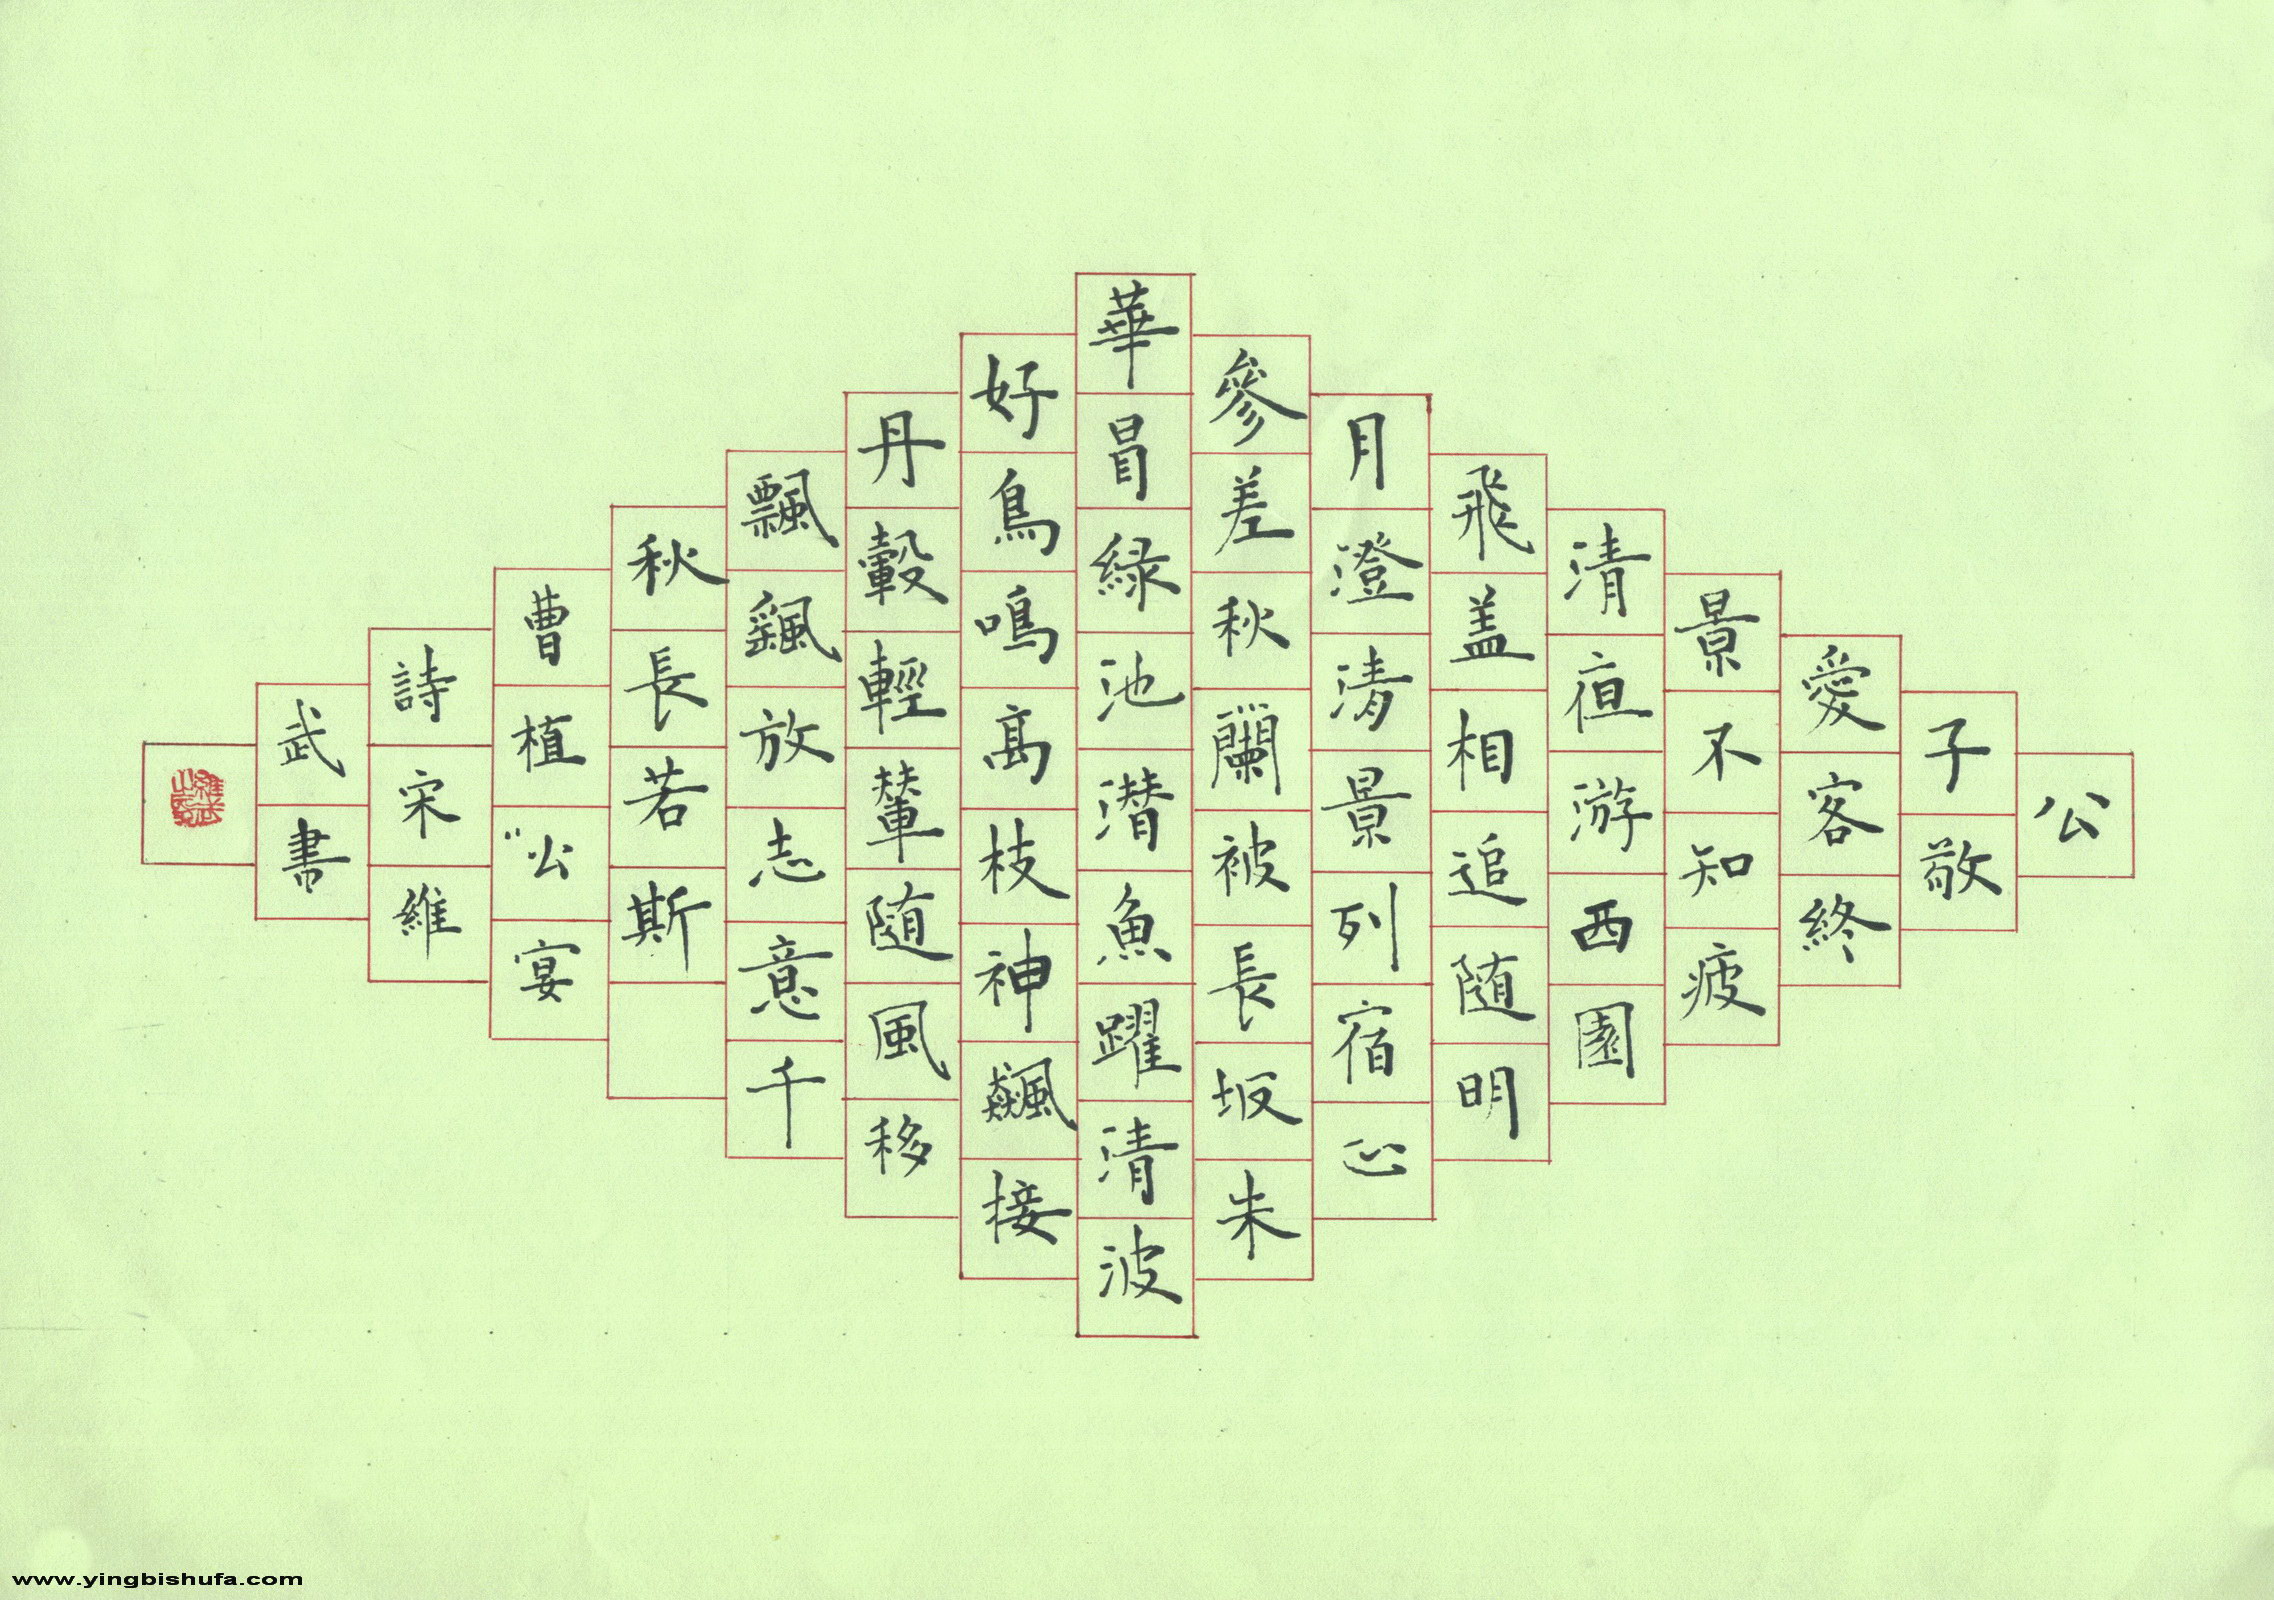 公
子敬
愛客終
景不知疲
清夜游西園
飛盖相追随明
月澄清景列宿正
參差秋蘭被長坂朱
華冒緑池潜魚躍清波
好鳥鳴高枝神飆接
丹轂輕輦随風移
飄飖放志意千
秋長若斯
曹植公宴
詩宋維
武書
www.yingbishufa.com